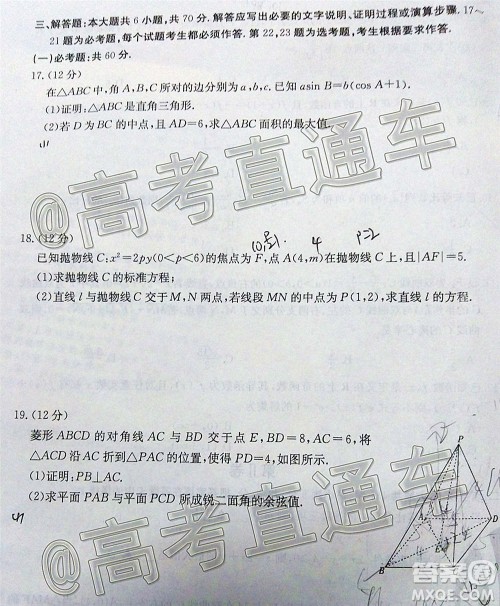 三、解答题:本大题共 6 小题,共 70 分. 解答应写出必要的文字说明、证明过程或演算步骤. 17~
21 题为必考题,每个试题考生都必须作答. 第 22,23 题为选考题,考生根据要求作答.
(一)必考题:共 60 分.
17. (12 分)
在△ABC 中,角 A,B,C 所对的边分别为 a,b,c. 已知 asin B=b(cos A+1).
(1)证明:△ABC 是直角三角形.
(2)若 D 为 BC 的中点,且 AD=6,求△ABC 面积的最大值.
@高考直通车
18. (12 分)
4 p=2
已知抛物线 C:x²=2py(0<p<6)的焦点为 F,点 A(4,m)在抛物线 C 上,且|AF|=5.
(1)求抛物线 C 的标准方程;
(2)直线 l 与抛物线 C 交于 M,N 两点,若线段 MN 的中点为 P(1,2),求直线 l 的方程.
@高考直通车
19. (12 分)
菱形 ABCD 的对角线 AC 与 BD 交于点 E,BD=8,AC=6,将
△ACD 沿 AC 折到△PAC 的位置,使得 PD=4,如图所示.
(1)证明:PB⊥AC.
(2)求平面 PAB 与平面 PCD 所成锐二面角的余弦值.
P
A
D
E
B
@高考直通车
答案圈
MXQE.COM